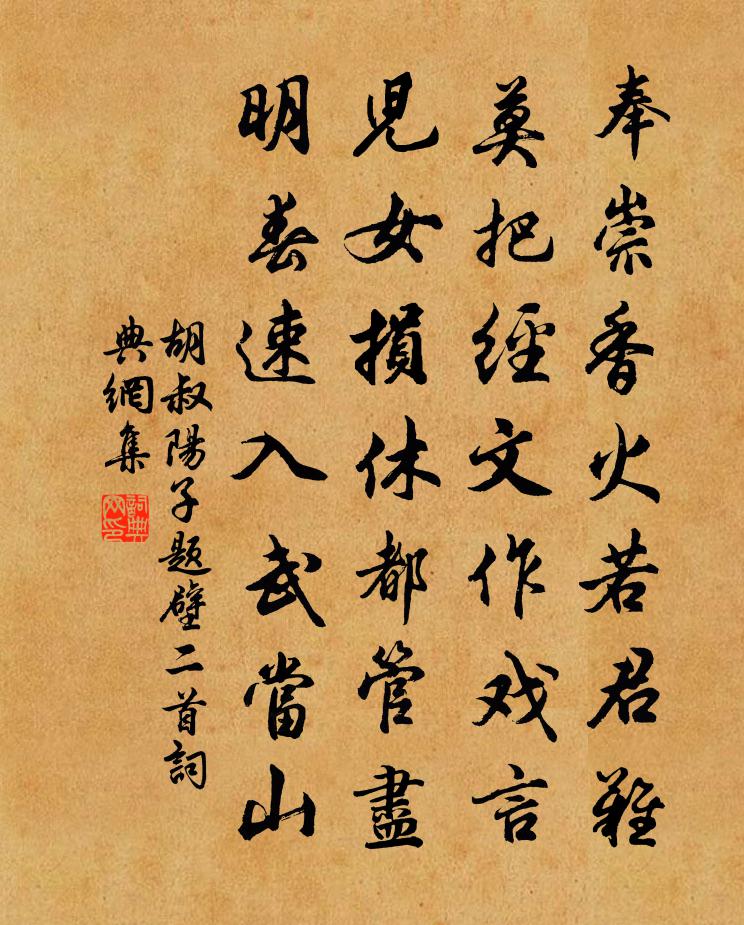 奉崇香火若君難
莫把經文作戏言
児女損休都管盡
明春速入武當山
胡叔陽子題壁二首詞
典網集
詞典
网印